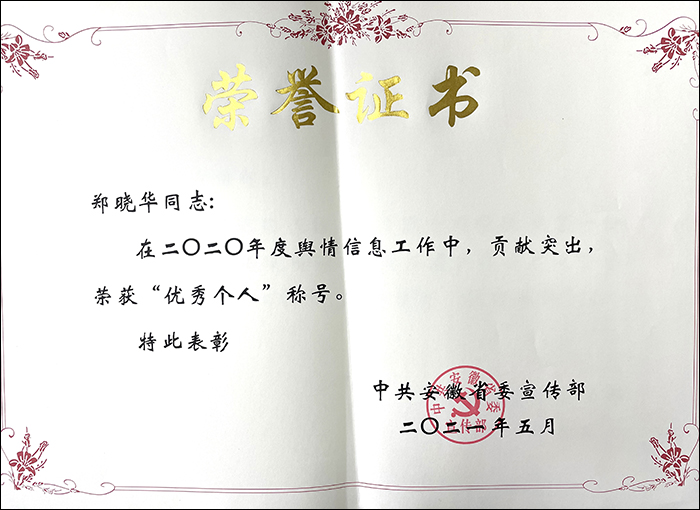 荣誉证书
郑晓华同志:
在二〇二〇年度舆情信息工作中，贡献突出，
荣获“优秀个人”称号。
特此表彰
中共安徽省委宣传部
二〇二一年五月
中共安徽省委
宣传部